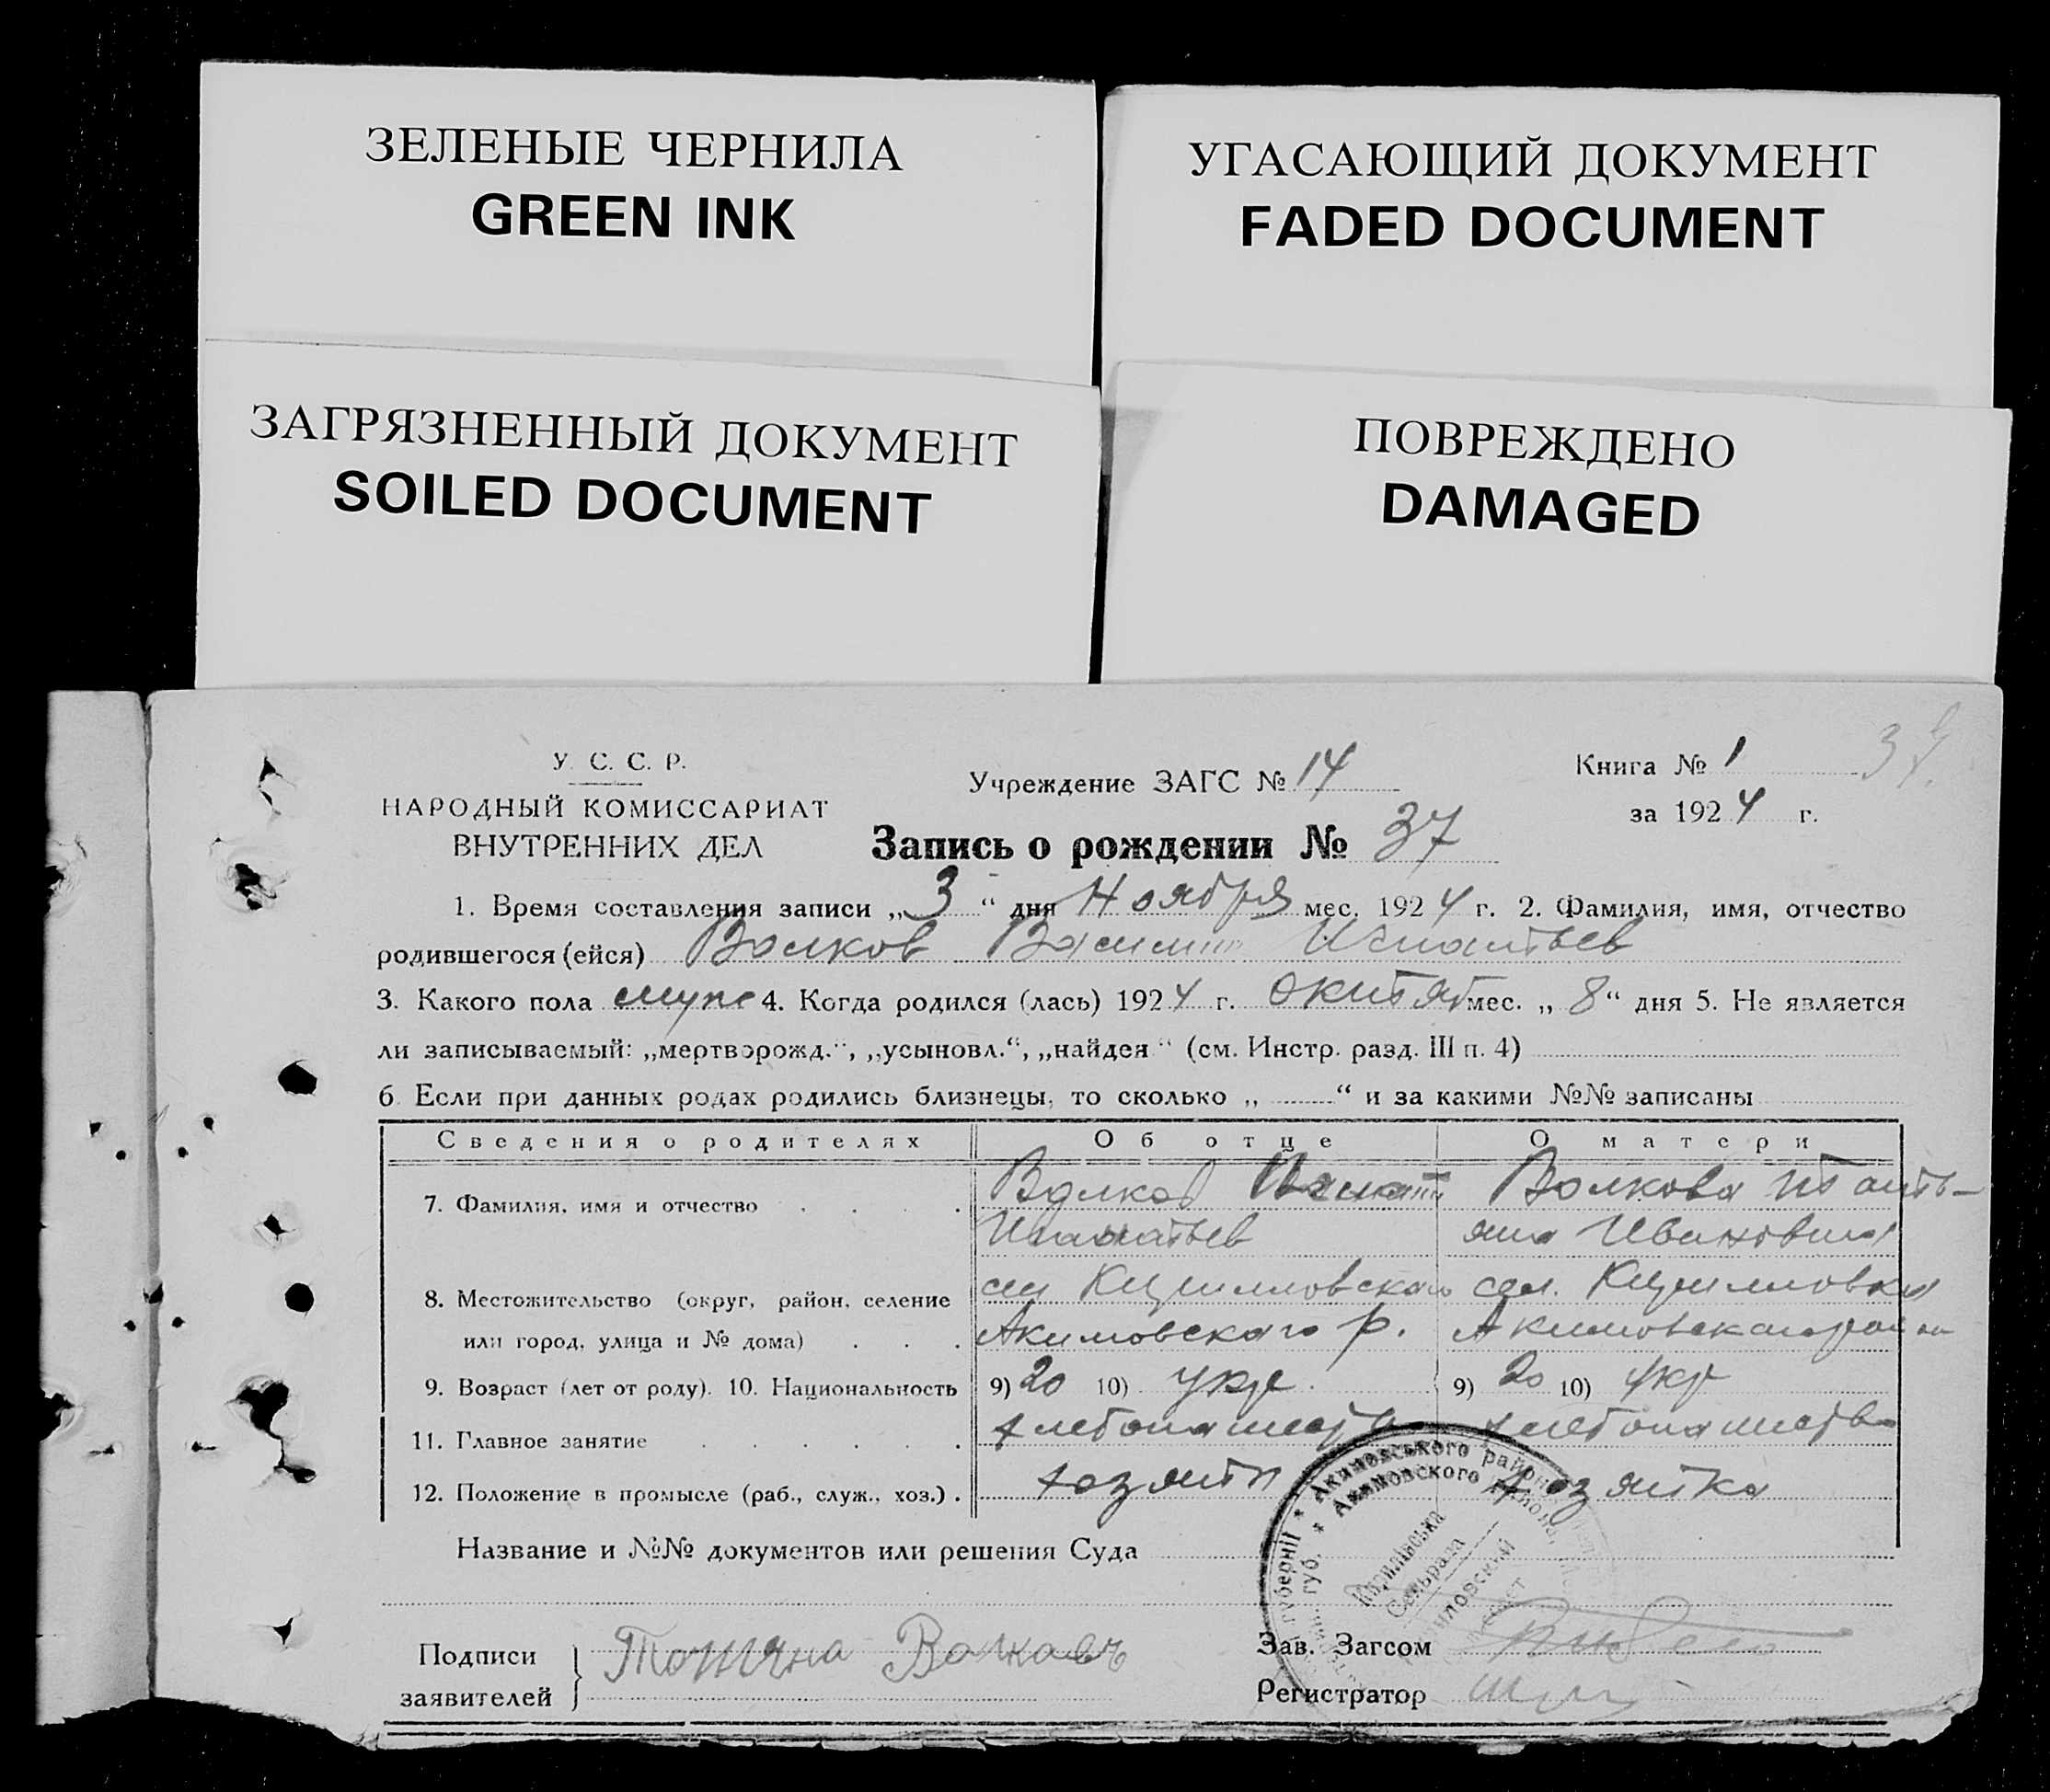 ЗЕЛЕНЫЕ ЧЕРНИЛА
GREEN INK
УГАСАЮЩИЙ ДОКУМЕНТ
FADED DOCUMENT
ЗАГРЯЗНЕННЫЙ ДОКУМЕНТ
SOILED DOCUMENT
ПОВРЕЖДЕНО
DAMAGED
У. С. С. Р.
НАРОДНЫЙ КОМИССАРИАТ
ВНУТРЕННИХ ДЕЛ
Учреждение ЗАГС № 14
Книга № 1
за 1924 г.
Запись о рождении № 37
1. Время составления записи „3“ дня Ноября мес. 1924 г. 2. Фамилия, имя, отчество
родившегося (ейся) Волков Василий Игнатьев
3. Какого пола муж 4. Когда родился (лась) 1924 г. Октяб мес. „8“ дня 5. Не является
ли записываемый: „мертворожд.“, „усыновл.“, „найден“ (см. Инстр. разд. III п. 4)
6. Если при данных родах родились близнецы, то сколько „ “ и за какими №№ записаны
Сведения о родителях Об отце О матери
7. Фамилия, имя и отчество Волков Игнатий Волкова Тать-
Игнатьев яна Ивановна
8. Местожительство (округ, район, селение сел Кирилловского сел. Кирилловка
или город, улица и № дома) Акимовского р. Акимовского район
9. Возраст (лет от роду). 10. Национальность 9) 20 10) укр. 9) 20 10) укр
11. Главное занятие хлебопашество хлебопашество
12. Положение в промысле (раб., служ., хоз.) хозяин хозяйка
Название и №№ документов или решения Суда
губернії * Акимовського району
губ. * Акимовского района
Сельрада
Подписи
заявителей
Татяна Волкова
Зав. Загсом
Регистратор